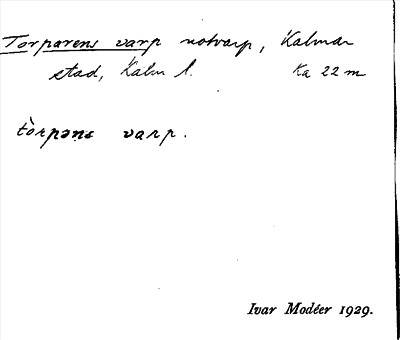 Torparens varp notvarp, Kalmar
stad, Kalm l. Ka 22 m
tòrpəṇs varp.
Ivar Modéer 1929.